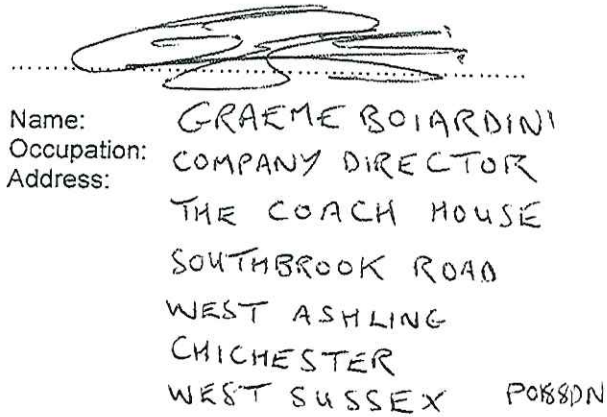 Name: GRAEME BOIARDINI
Occupation: COMPANY DIRECTOR
Address:
THE COACH HOUSE
SOUTHBROOK ROAD
WEST ASHLING
CHICHESTER
WEST SUSSEX PO188DN